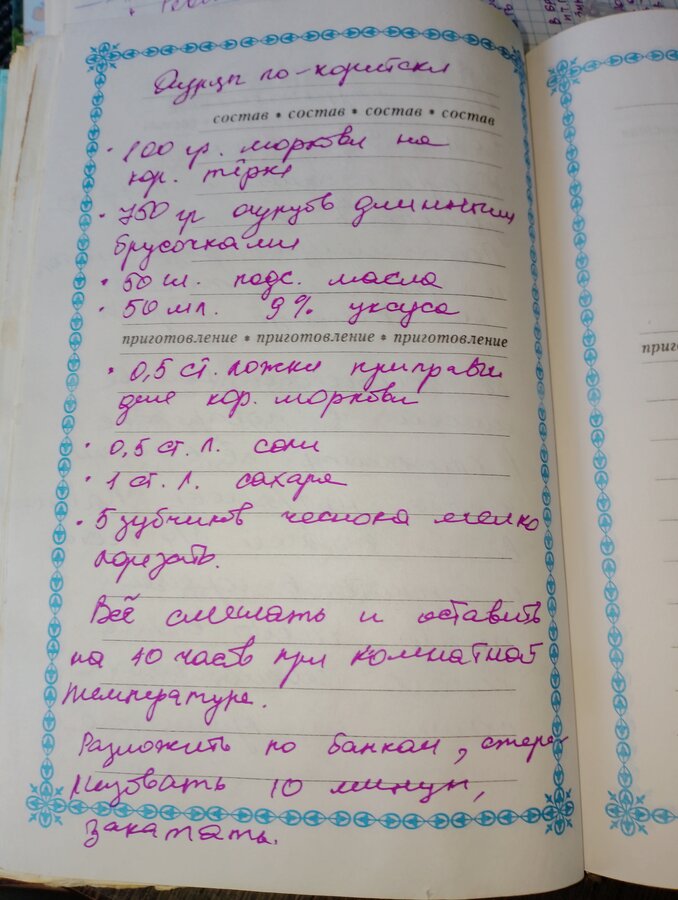 Огурцы по-корейски
состав • состав • состав • состав
• 100 гр. моркови на
кор. тёрке
• 750 гр огурцов длинными
брусочками
• 50 мл. подс. масла
• 50 мл. 9% уксуса
приготовление • приготовление • приготовление
• 0,5 ст. ложки приправы
для кор. моркови
• 0,5 ст. л. соли
• 1 ст. л. сахара
• 5 зубчиков чеснока мелко
порезать.
Всё смешать и оставить
на 10 часов при комнатной
температуре.
Разложить по банкам, стери
лизовать 10 минут,
закатать.
приг